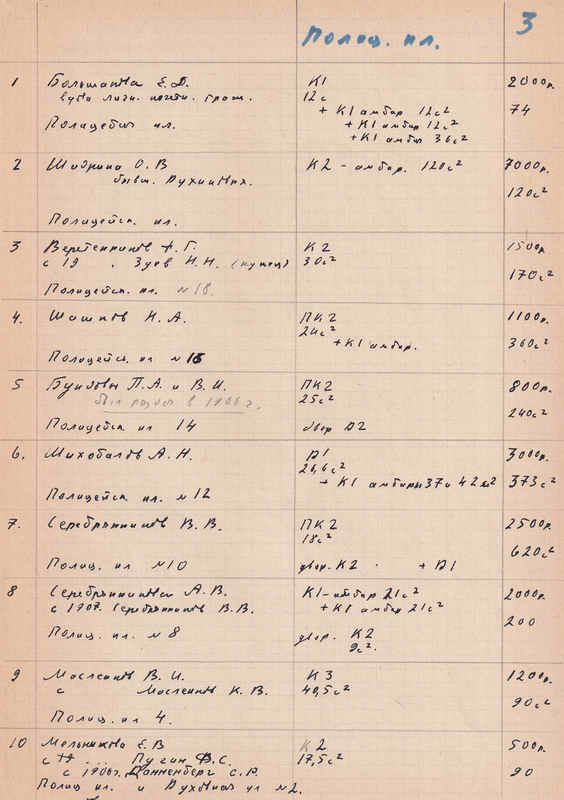 Полиц. пл.
3
1
Большакова Е.Д.
вдова личн. почетн. граж.
Полицейск. пл.
К1
12с
+ К1 амбар 12с²
+ К1 амбар 12с²
+ К1 амбар 36с²
2000р.
74
2
Шабрина О.В
бывш. Духиновых.
Полицейск. пл.
К2 - амбар. 120с²
7000р.
120с²
3
Веретенников А.Г.
с 19 . Зуев Н.Н. (купец)
Полицейск. пл. №18.
К2
30с²
1500р.
170с²
4.
Шашков И.А.
Полицейск. пл №16
ПК2
24с²
+К1 амбар.
1100р.
360с²
5
П.А. и В.И.
был раздел в 1906г.
Полицейск пл 14
ПК2
25с²
двор Д2
800р.
240с²
6.
А.Н.
Полицейск пл. №12
Д1
26,6с²
+ К1 амбары 37 и 42 м²
3000р.
373с²
7.
Серебрянников В.В.
Полиц. пл №10
ПК2
18с²
двор. К2 . + Д1
2500р.
620с²
8
Серебрянникова А.В.
с 1907. Серебрянников В.В.
Полиц. пл. №8
К1-амбар 21с²
+К1 амбар 21с²
двор. К2
9с².
2000р.
200
9
Маслеников В.И.
с Маслеников К.В.
Полиц. пл 4.
К3
40,5с²
1200р.
90с²
10
Мельникова Е.В
с 19 ... Пугин Ф.С.
с 1906г. Данненберг С.Р.
Полиц пл. и Духовная ул №2.
К2
17,5с²
500р.
90